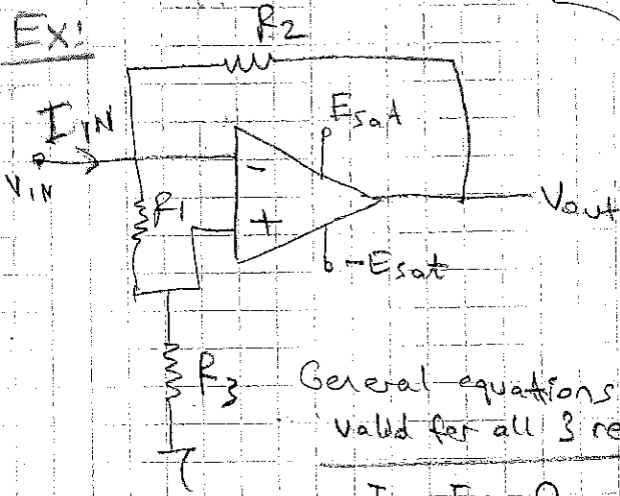 Ex:
R2
IIN
Esat
VIN
R1
-
+
Vout
-Esat
R3
General equations
valid for all 3 re